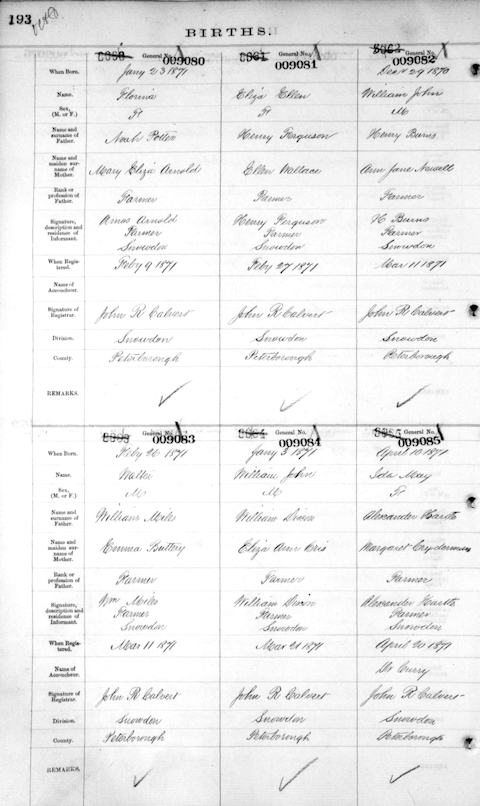 193
BIRTHS.
General No. 009080 General No. 009081 General No. 009082
When Born. Jany 23 1871 Decr 29 1870
Name. Florina Eliza Ellen William John
Sex, (M. or F.) F F M
Name and surname of Father. Noah Potter Henry Ferguson Henry Burns
Name and maiden surname of Mother. Mary Eliza Arnold Ellen Wallace Ann Jane
Rank or profession of Father. Farmer Farmer Farmer
Signature, description and residence of Informant. Amos Arnold Henry Ferguson H Burns
Farmer Farmer Farmer
Snowdon Snowdon Snowdon
When Registered. Feby 9 1871 Feby 27 1871 Mar 11 1871
Name of Accoucheur.
Signature of Registrar. John R Calvert John R Calvert John R Calvert
Division. Snowdon Snowdon Snowdon
County. Peterborough Peterborough Peterborough
REMARKS.
General No. 009083 General No. 009084 General No. 009085
When Born. Feby 26 1871 Jany 3 1871 April 10 1871
Name. Walter William John Ida May
Sex, (M. or F.) M M F
Name and surname of Father. William Miles William Dixon Alexander
Name and maiden surname of Mother. Emma Buttery Eliza Ann Margaret Cryderman
Rank or profession of Father. Farmer Farmer Farmer
Signature, description and residence of Informant. Wm Miles William Dixon Alexander
Farmer Farmer Farmer
Snowdon Snowdon Snowdon
When Registered. Mar 11 1871 Mar 21 1871 April 20 1871
Name of Accoucheur. Dr Curry
Signature of Registrar. John R Calvert John R Calvert John R Calvert
Division. Snowdon Snowdon Snowdon
County. Peterborough Peterborough Peterborough
REMARKS.